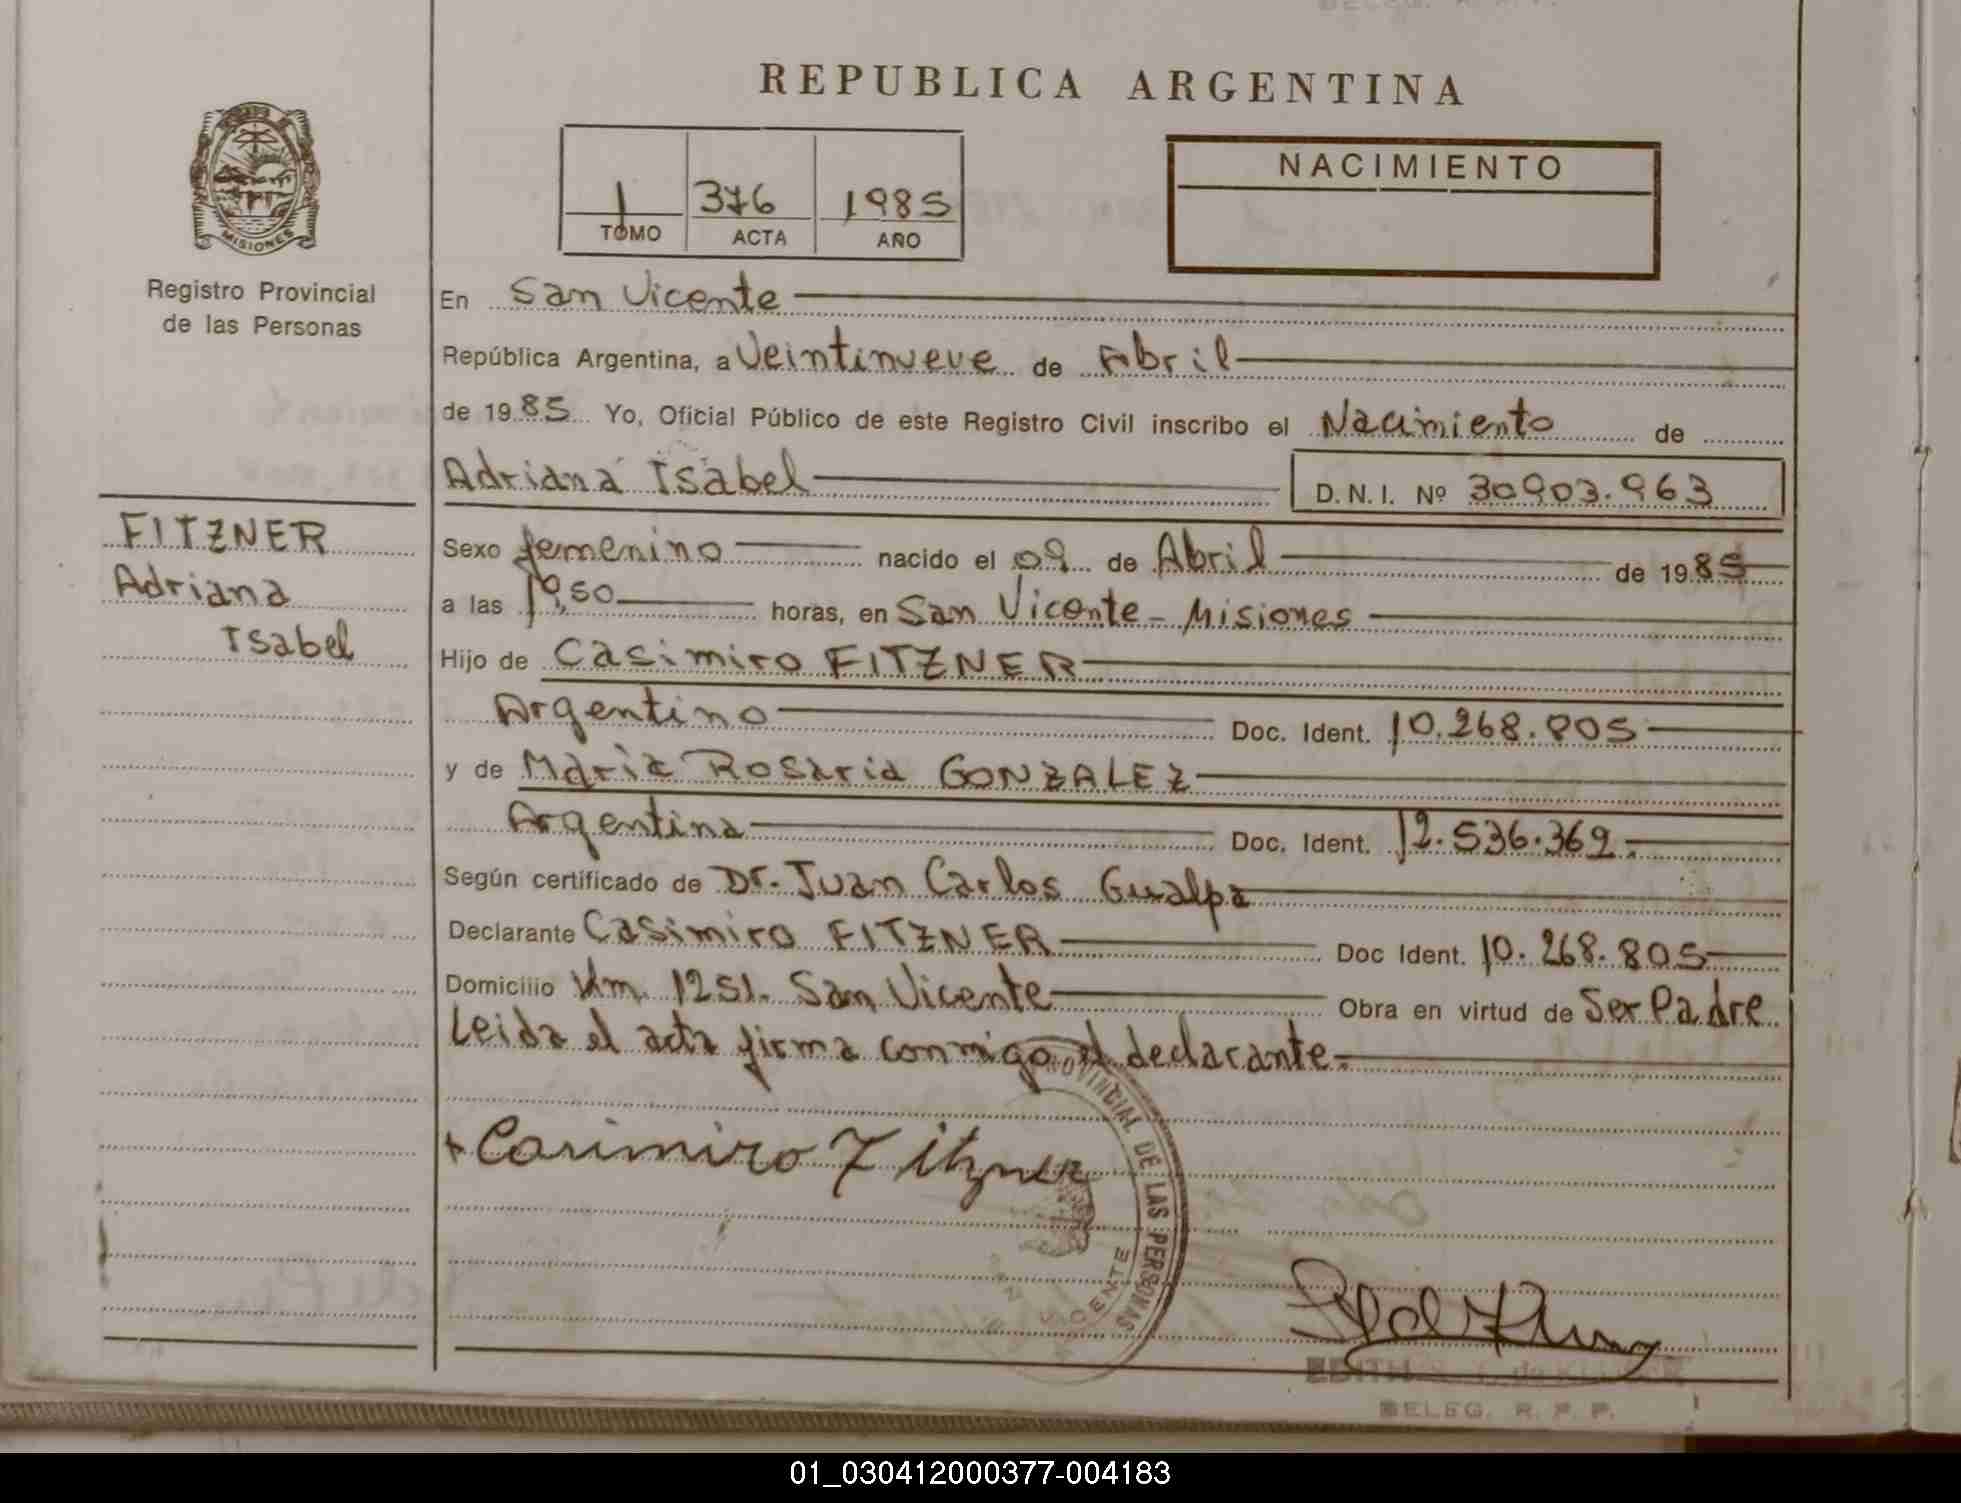 REPUBLICA ARGENTINA
MISIONES
Registro Provincial
de las Personas
1 376 1985
TOMO ACTA AÑO
NACIMIENTO
En San Vicente
República Argentina, a Veintinueve de Abril
de 1985 Yo, Oficial Público de este Registro Civil inscribo el Nacimiento de
Adriana Isabel D.N.I. Nº 30903.963
FITZNER
Adriana
Isabel
Sexo femenino nacido el 09 de Abril de 1985
a las 19,50 horas, en San Vicente - Misiones
Hijo de Casimiro FITZNER
Argentino Doc. Ident. 10.268.805
y de Maria Rosaria GONZALEZ
Argentina Doc. Ident. 12.536.369.
Según certificado de Dr. Juan Carlos Gualpa
Declarante Casimiro FITZNER Doc Ident. 10.268.805
Domicilio Km. 1251. San Vicente Obra en virtud de Ser Padre
Leida el acta firma conmigo el declarante.
PROVINCIAL DE LAS PERSONAS
SAN VICENTE
+ Casimiro Fitzner
EDITH
DELEG. R. P. P.
01_030412000377-004183